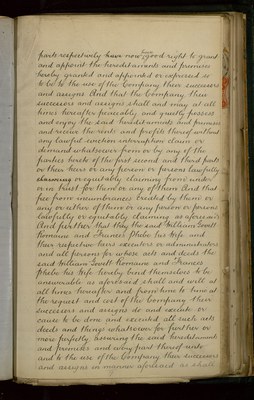 parts respectively have now good right to grant
and appoint the hereditaments and premises
hereby granted and appointed or expressed so
to be to the use of the Company their successors
and assigns And that the Company their
successors and assigns shall and may at all
times hereafter peaceably and quietly possess
and enjoy the said hereditaments and premises
and receive the rents and profits thereof without
any lawful eviction interruption claim or
demand whatsoever from or by any of the
parties hereto of the first second and third parts
or their heirs or any person or persons lawfully
or equitably claiming from under
or in trust for them or any of them And that
free from incumbrances created by them or
any or either of them or any person or persons
lawfully or equitably claiming as aforesaid
And further that they the said William Lovett
Romaine and Frances Phebe his Wife and
their respective heirs executors or administrators
and all persons for whose acts and deeds the
said William Lovett Romaine and Frances
Phebe his Wife hereby bind themselves to be
answerable as aforesaid shall and will at
all times hereafter and from time to time at
the request and cost of the Company their
successors and assigns do and execute or
cause to be done and executed all such acts
deeds and things whatsoever for further or
more perfectly assuring the said hereditaments
and premises and every part thereof unto
and to the use of the Company their successors
and assigns in manner aforesaid as shall